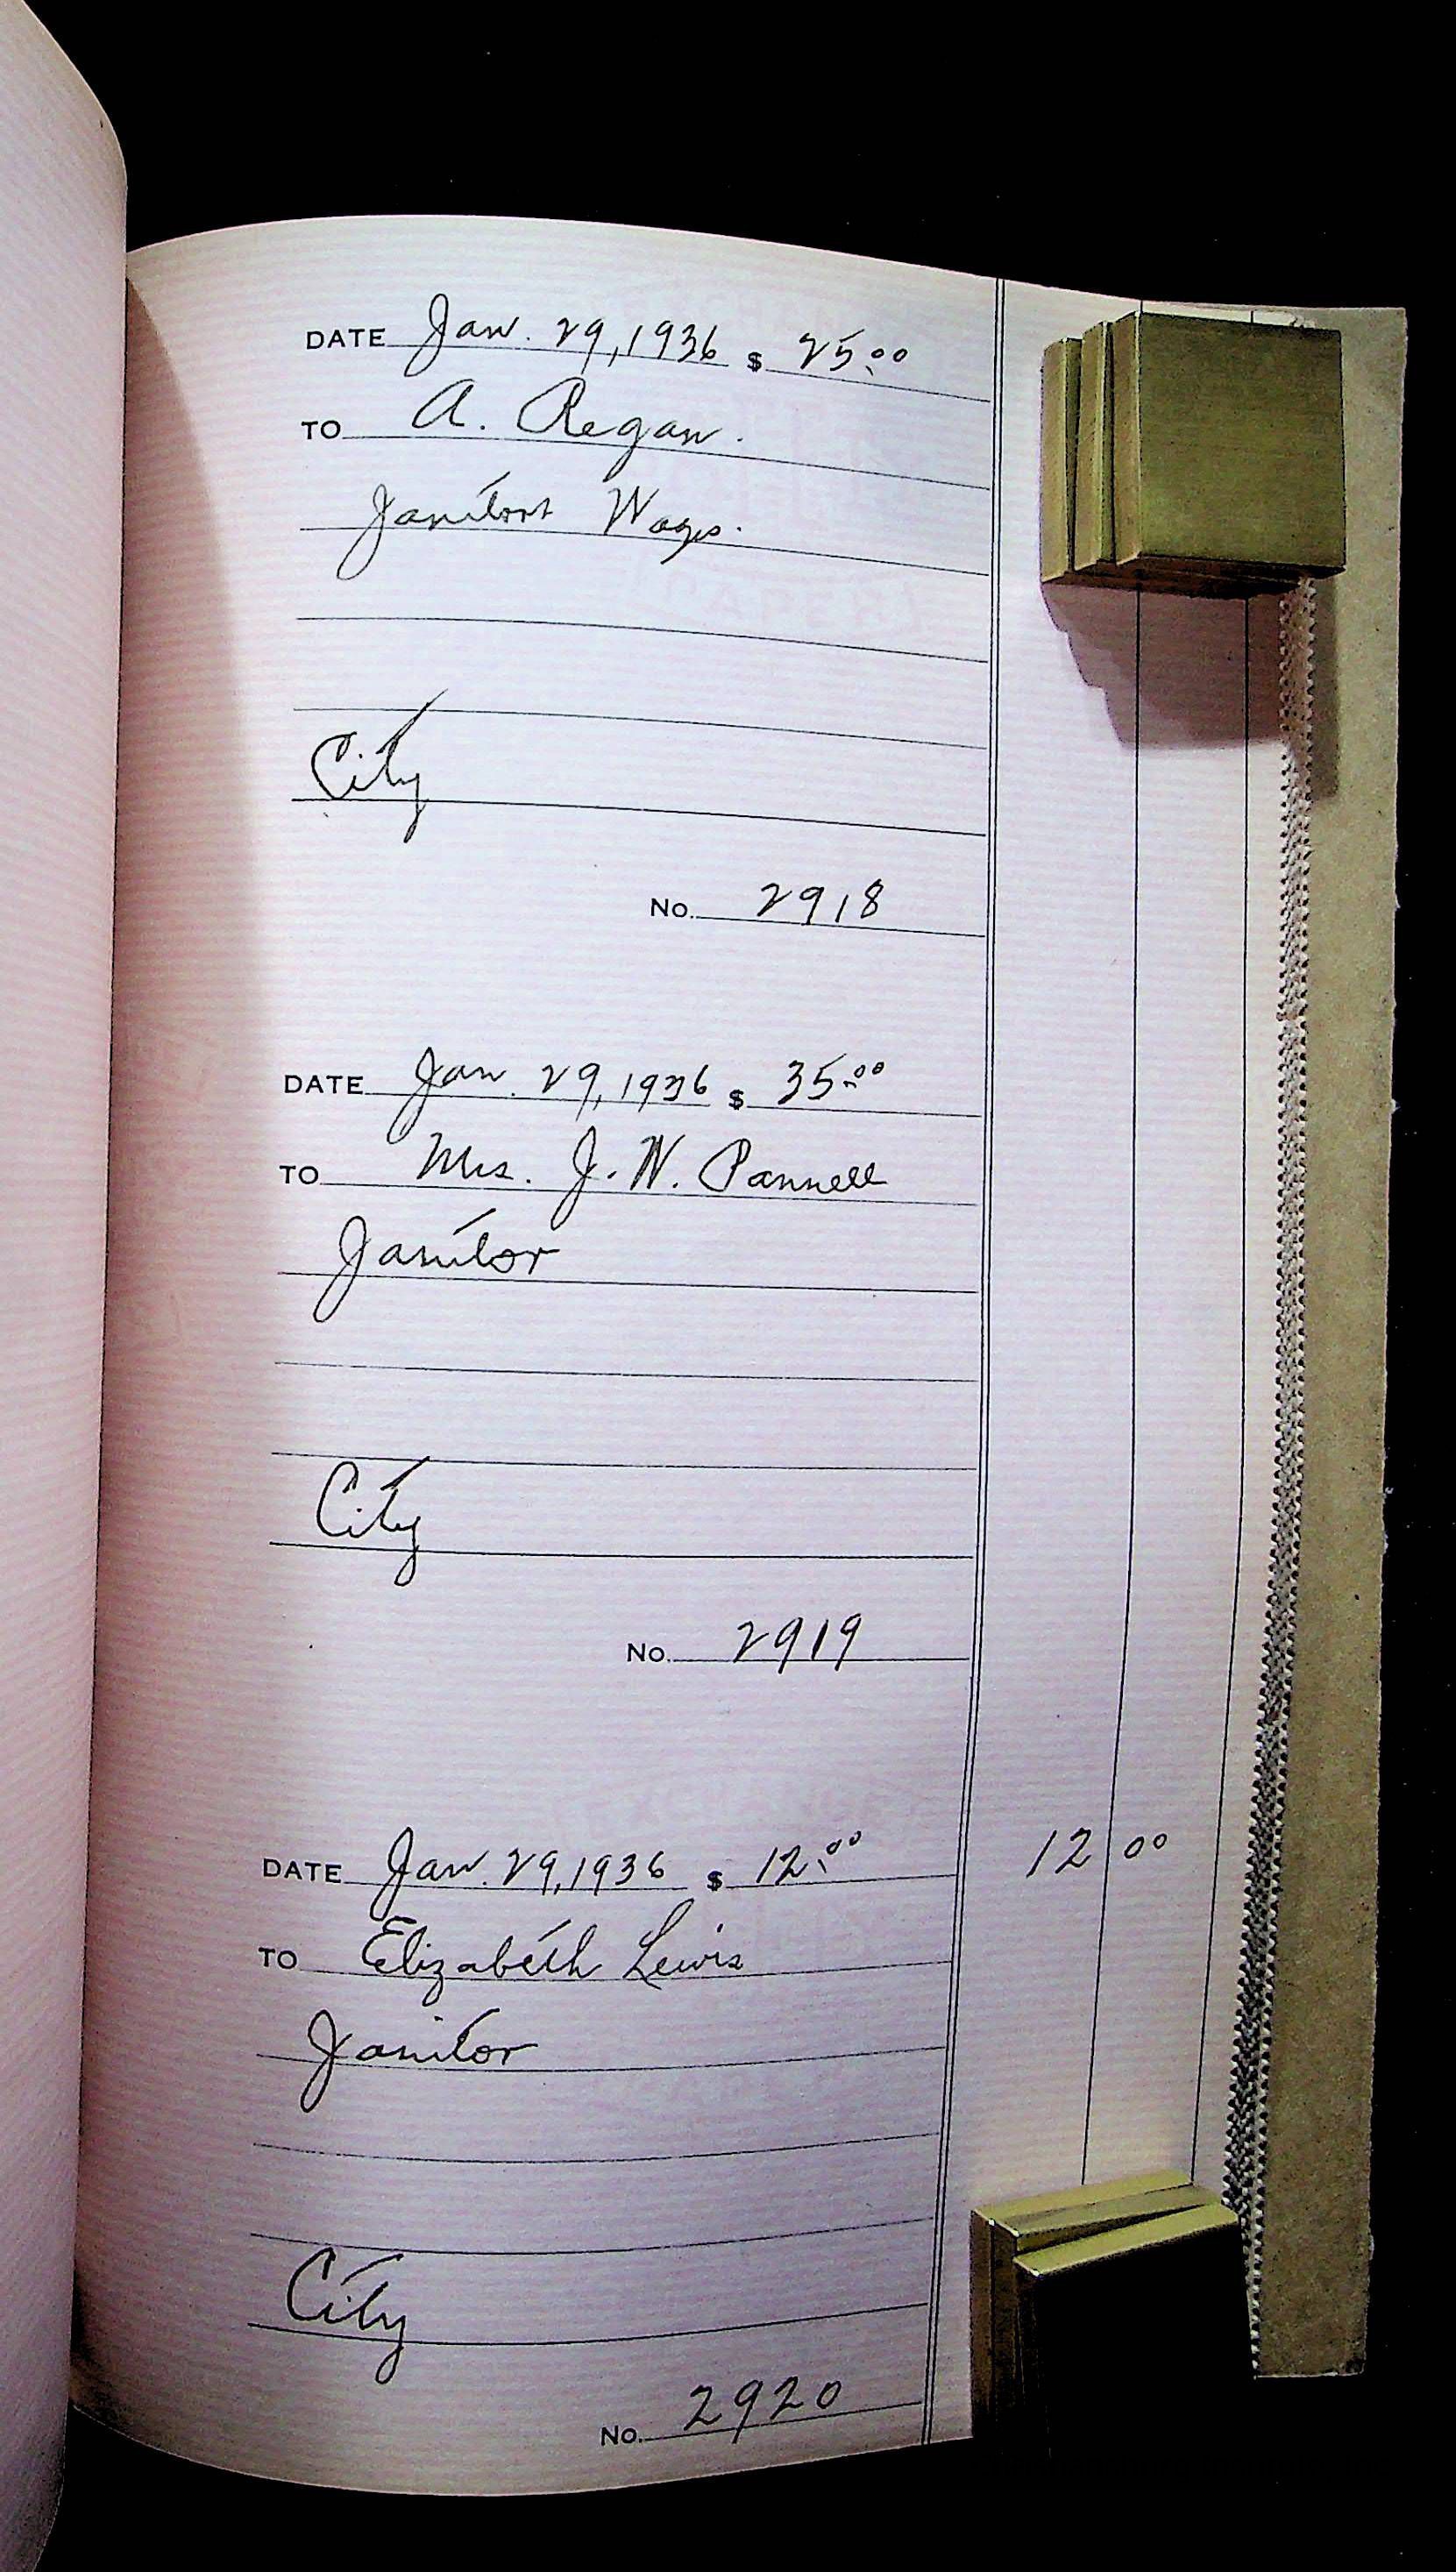 DATE Jan. 29, 1936 $ 25.00
TO A. Regan.
Janitors Wages.
City
No. 2918
DATE Jan. 29, 1936 $ 35.00
TO Mrs. J. W. Pannell
Janitor
City
No. 2919
DATE Jan. 29, 1936 $ 12.00 12 00
TO Elizabeth Lewis
Janitor
City
No. 2920